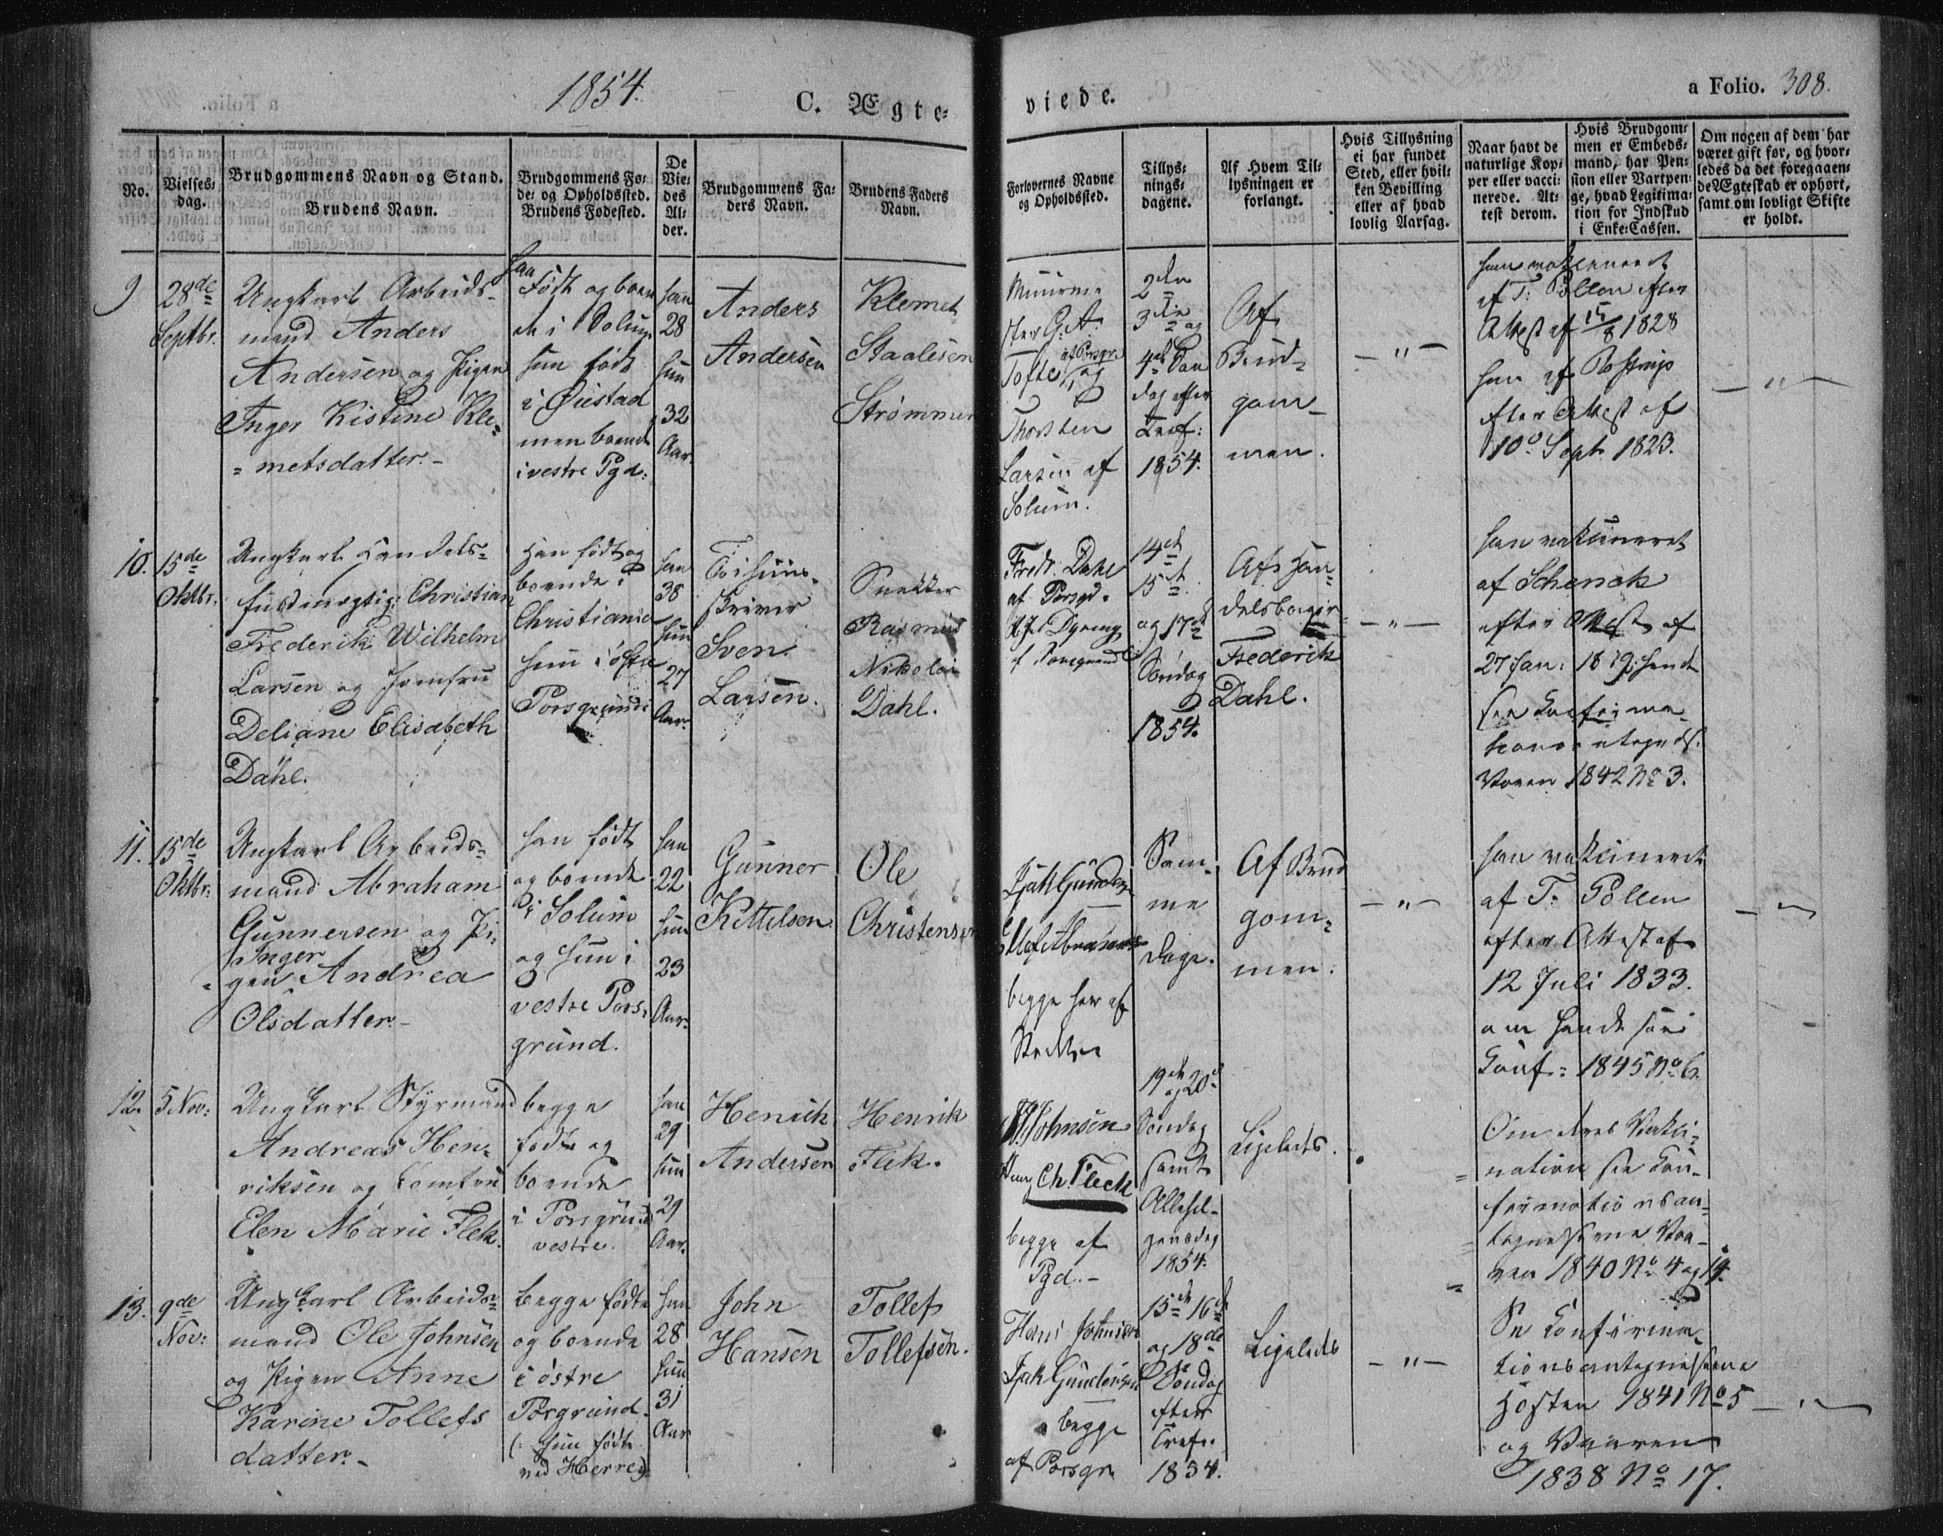 1854.
C. Ægte-
viede.
a Folio. 308.
No.
Vielses-
dag.
Brudgommens Navn og Stand.
Brudens Navn.
Brudgommens Fø-
de- og Opholdssted.
Brudens Fødested.
De
Vie-
des
Al-
der.
Brudgommens Fa-
ders Navn.
Brudens Faders
Navn.
Forlovernes Navne
og Opholdssted.
Tillys-
nings-
dagene.
Af Hvem Til-
lysningen er
forlangt.
Hvis Tillysning
ei har fundet
Sted, eller hvil-
ken Bevilling
eller af hvad
lovlig Aarsag.
Naar havt de
naturlige Kop-
per eller vacci-
nerede. At-
test derom.
Hvis Brudgom-
men er Embeds-
mand, har Pen-
sion eller Vartpen-
ge, hvad Legitima-
tion for Indskud
i Enke-Cassen.
Om nogen af dem har
været gift før, og hvor-
ledes da det foregaaen-
de Ægteskab er ophørt,
samt om lovligt Skifte
er holdt.
9
28de
Septbr.
Ungkarl Arbeids-
mand Anders
Andersen og Pigen
Inger Kistine Kle-
metsdatter.
Født og boen
de i Solum
hun født
i Øiestad
men boende
i vestre Pgd:
han
28
hun
32
Aar.
Anders
Andersen
Klemet
Staalesen
Strømmen
Muurme
ster G. A.
Tofte af Porsgr.
og
Thorsten
Larsen af
Solum.
2den
3die og
4de Søn
dag efter
Tref:
1854.
Af
Brud-
gom-
men.
- " -
han vakcineret
af T: Pollen efter
Attest af 15/8 1828
hun af Rostrup
efter Attest af
10. Sept. 1823.
- " -
10.
15de
Oktbr.
Ungkarl Handels-
fuldmægtig Christian
Frederik Wilhelm
Larsen og Jomfru
Deliane Elisabeth
Dahl.
Han født og
boende i
Christiania
hun i østre
Porsgrund
han
38
hun
27
Aar.
skriver
Sven
Larsen.
Snekker
Rasmus
Nikolai
Dahl.
Fredr. Dahl
af Porsgd.
14de
15de
og 17de
Søndag
1854.
Af Han-
delsborger
Frederik
Dahl.
- " -
han vakcineret
af Schenck
efter Attest af
27 Jan: 1819, hende
see Konfirma-
Vaaren 1842 No 3.
11.
15de
Oktbr.
Ungkarl Arbeids-
mand Abraham
Gunnersen og Pi-
Inger
gen Andrea
Olsdatter.-
han født
og boende
i Solum
og hun i
vestre Pors-
grund.
han
22
hun
23
Aar.
Gunner
Kittelsen
Ole
Christensen
begge her af
Stedet
Sam-
me
Dage.
Af Brud
gom-
men.
- " -
han vakcineret
af T: Pollen
efter Attest af
12 Juli 1833.
om hende see
Konf: 1845 No 6.
- " -
12.
5 Nov:
Ungkarl Styrmand
Andreas Hen-
riksen og Jomfru
Elen Marie Flek.
begge
fødte og
boende
i Porsgrund
vestre.
han
29
hun
29
Aar.
Henrik
Andersen
Henrik
Flek.
Johnsen
Ch. Fleck
begge af
Pgd.-
19de og 20de
Søndag
samt
Allehel-
gensdag
1854.
Ligeledes.
Om deres Vakci-
nation see Kon-
firmationsan-
tegnelserne Vaa-
ren 1840 No 4 og 14.
13.
9de
Nov:
Ungkarl Arbeids-
mand Ole Johnsen
og Pigen Anne
Karine Tollefs
datter.-
begge fødte
og boende
i østre
Porsgrund.
(: hun født
ved Herre:)
han
28
hun
31
Aar
John
Hansen
Tollef
Tollefsen.
Hans Johnsen
begge
af Porsgr.
15de 16de
og 18de
Søndag
efter
Tref:
1854.
Ligeledes
- " -
Se Konfirma-
tionsantegnelserne
Høsten 1841 No 5
og Vaaren
1838 No 17.